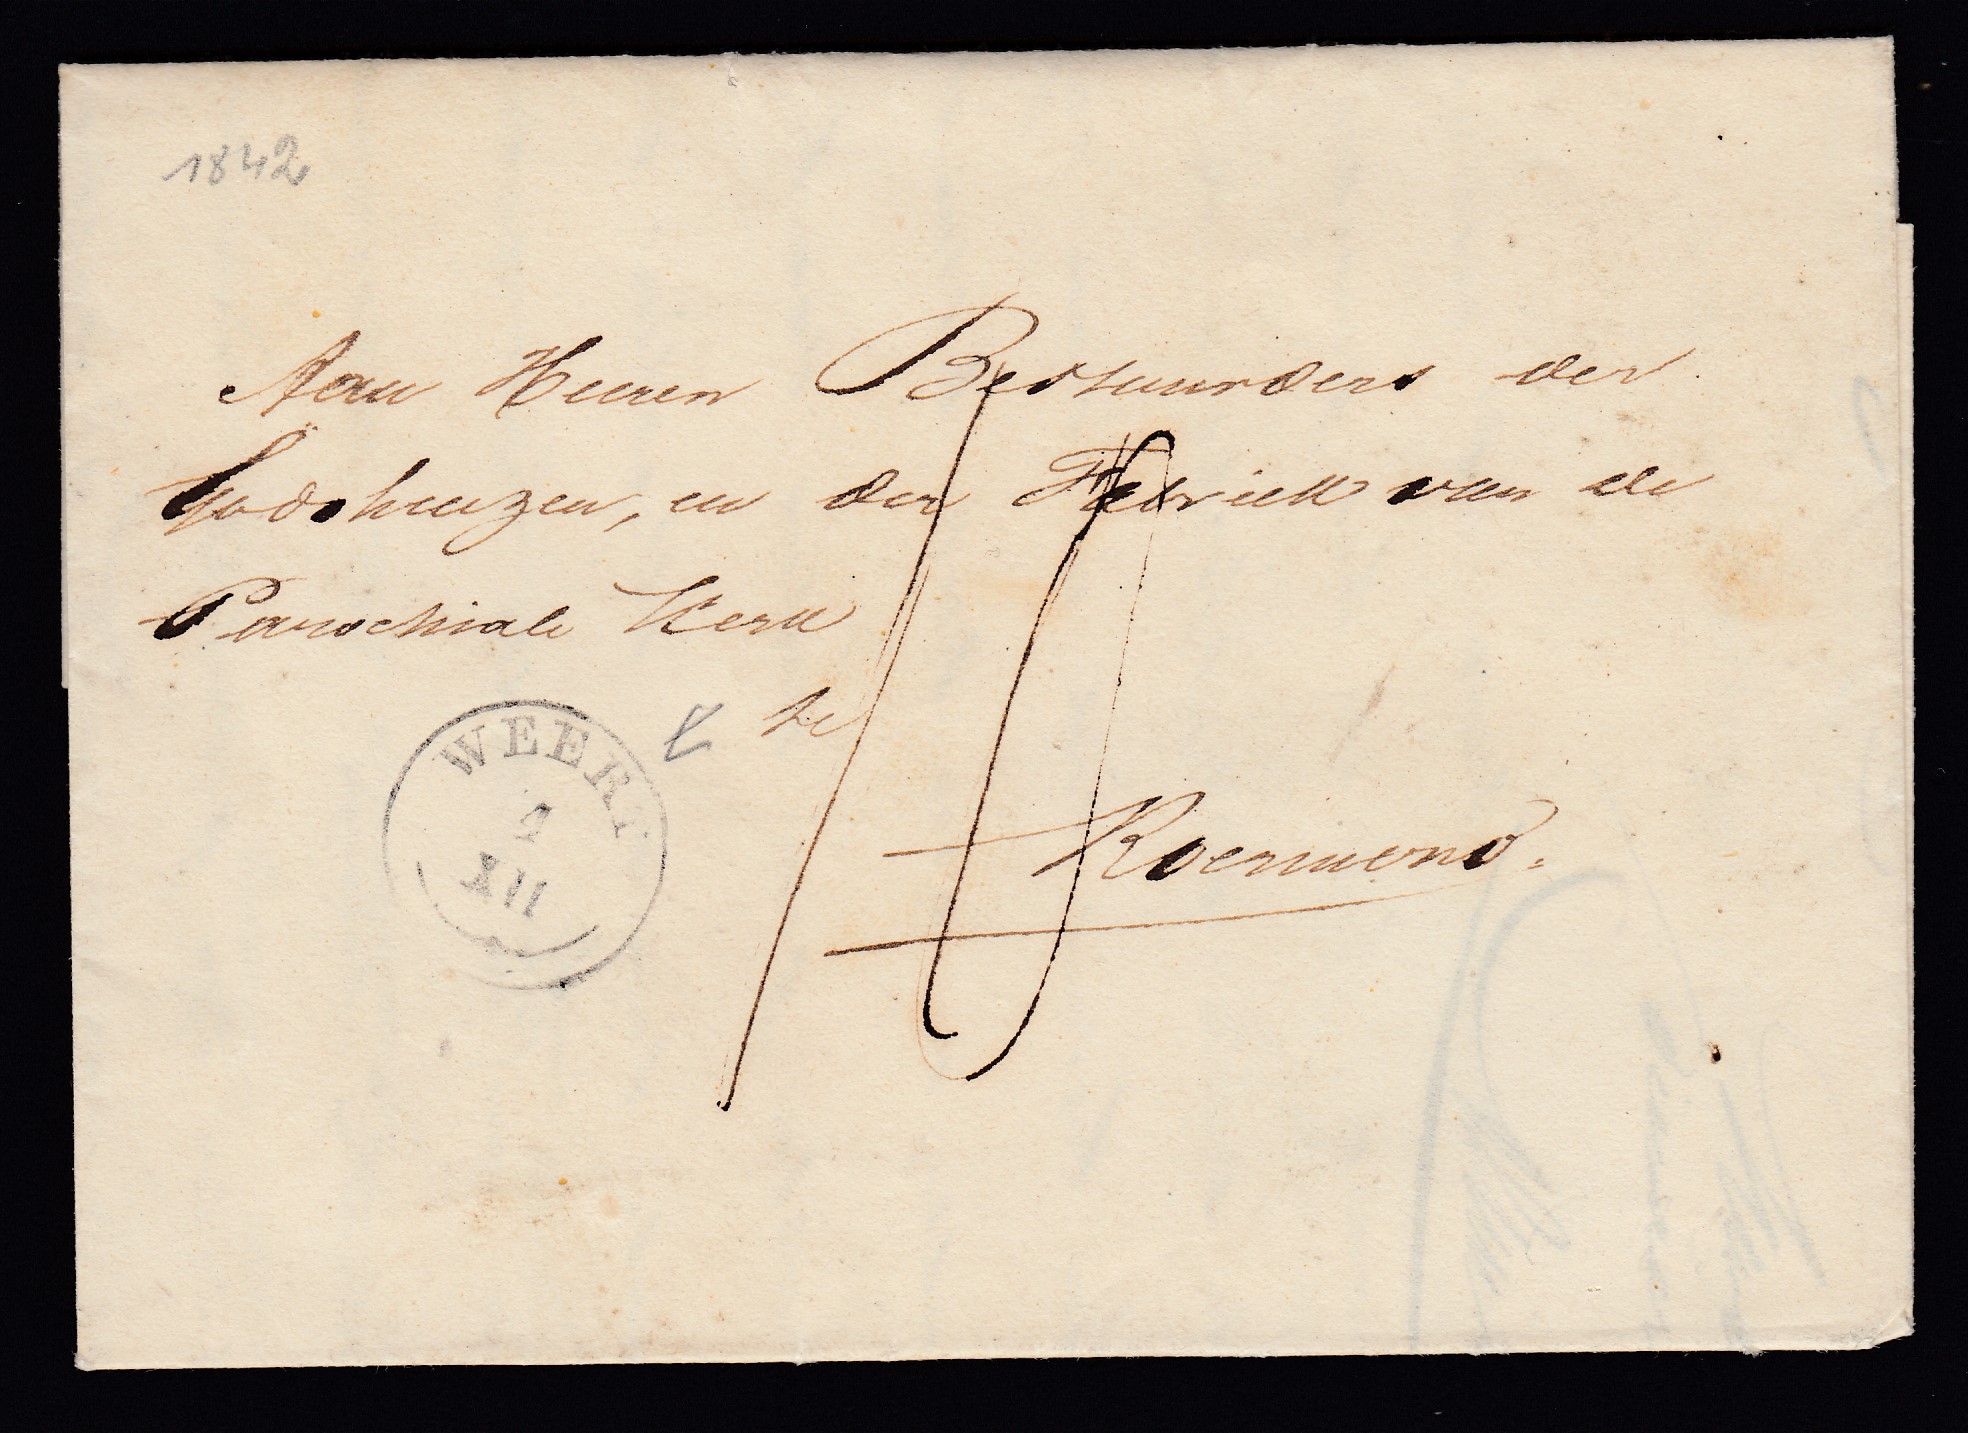 1842
Aan Heeren Bestuurders der
Godshuizen, en der Fabriek van de
Parochiale Kerk
te
Roermond.
10
WEERT
XII